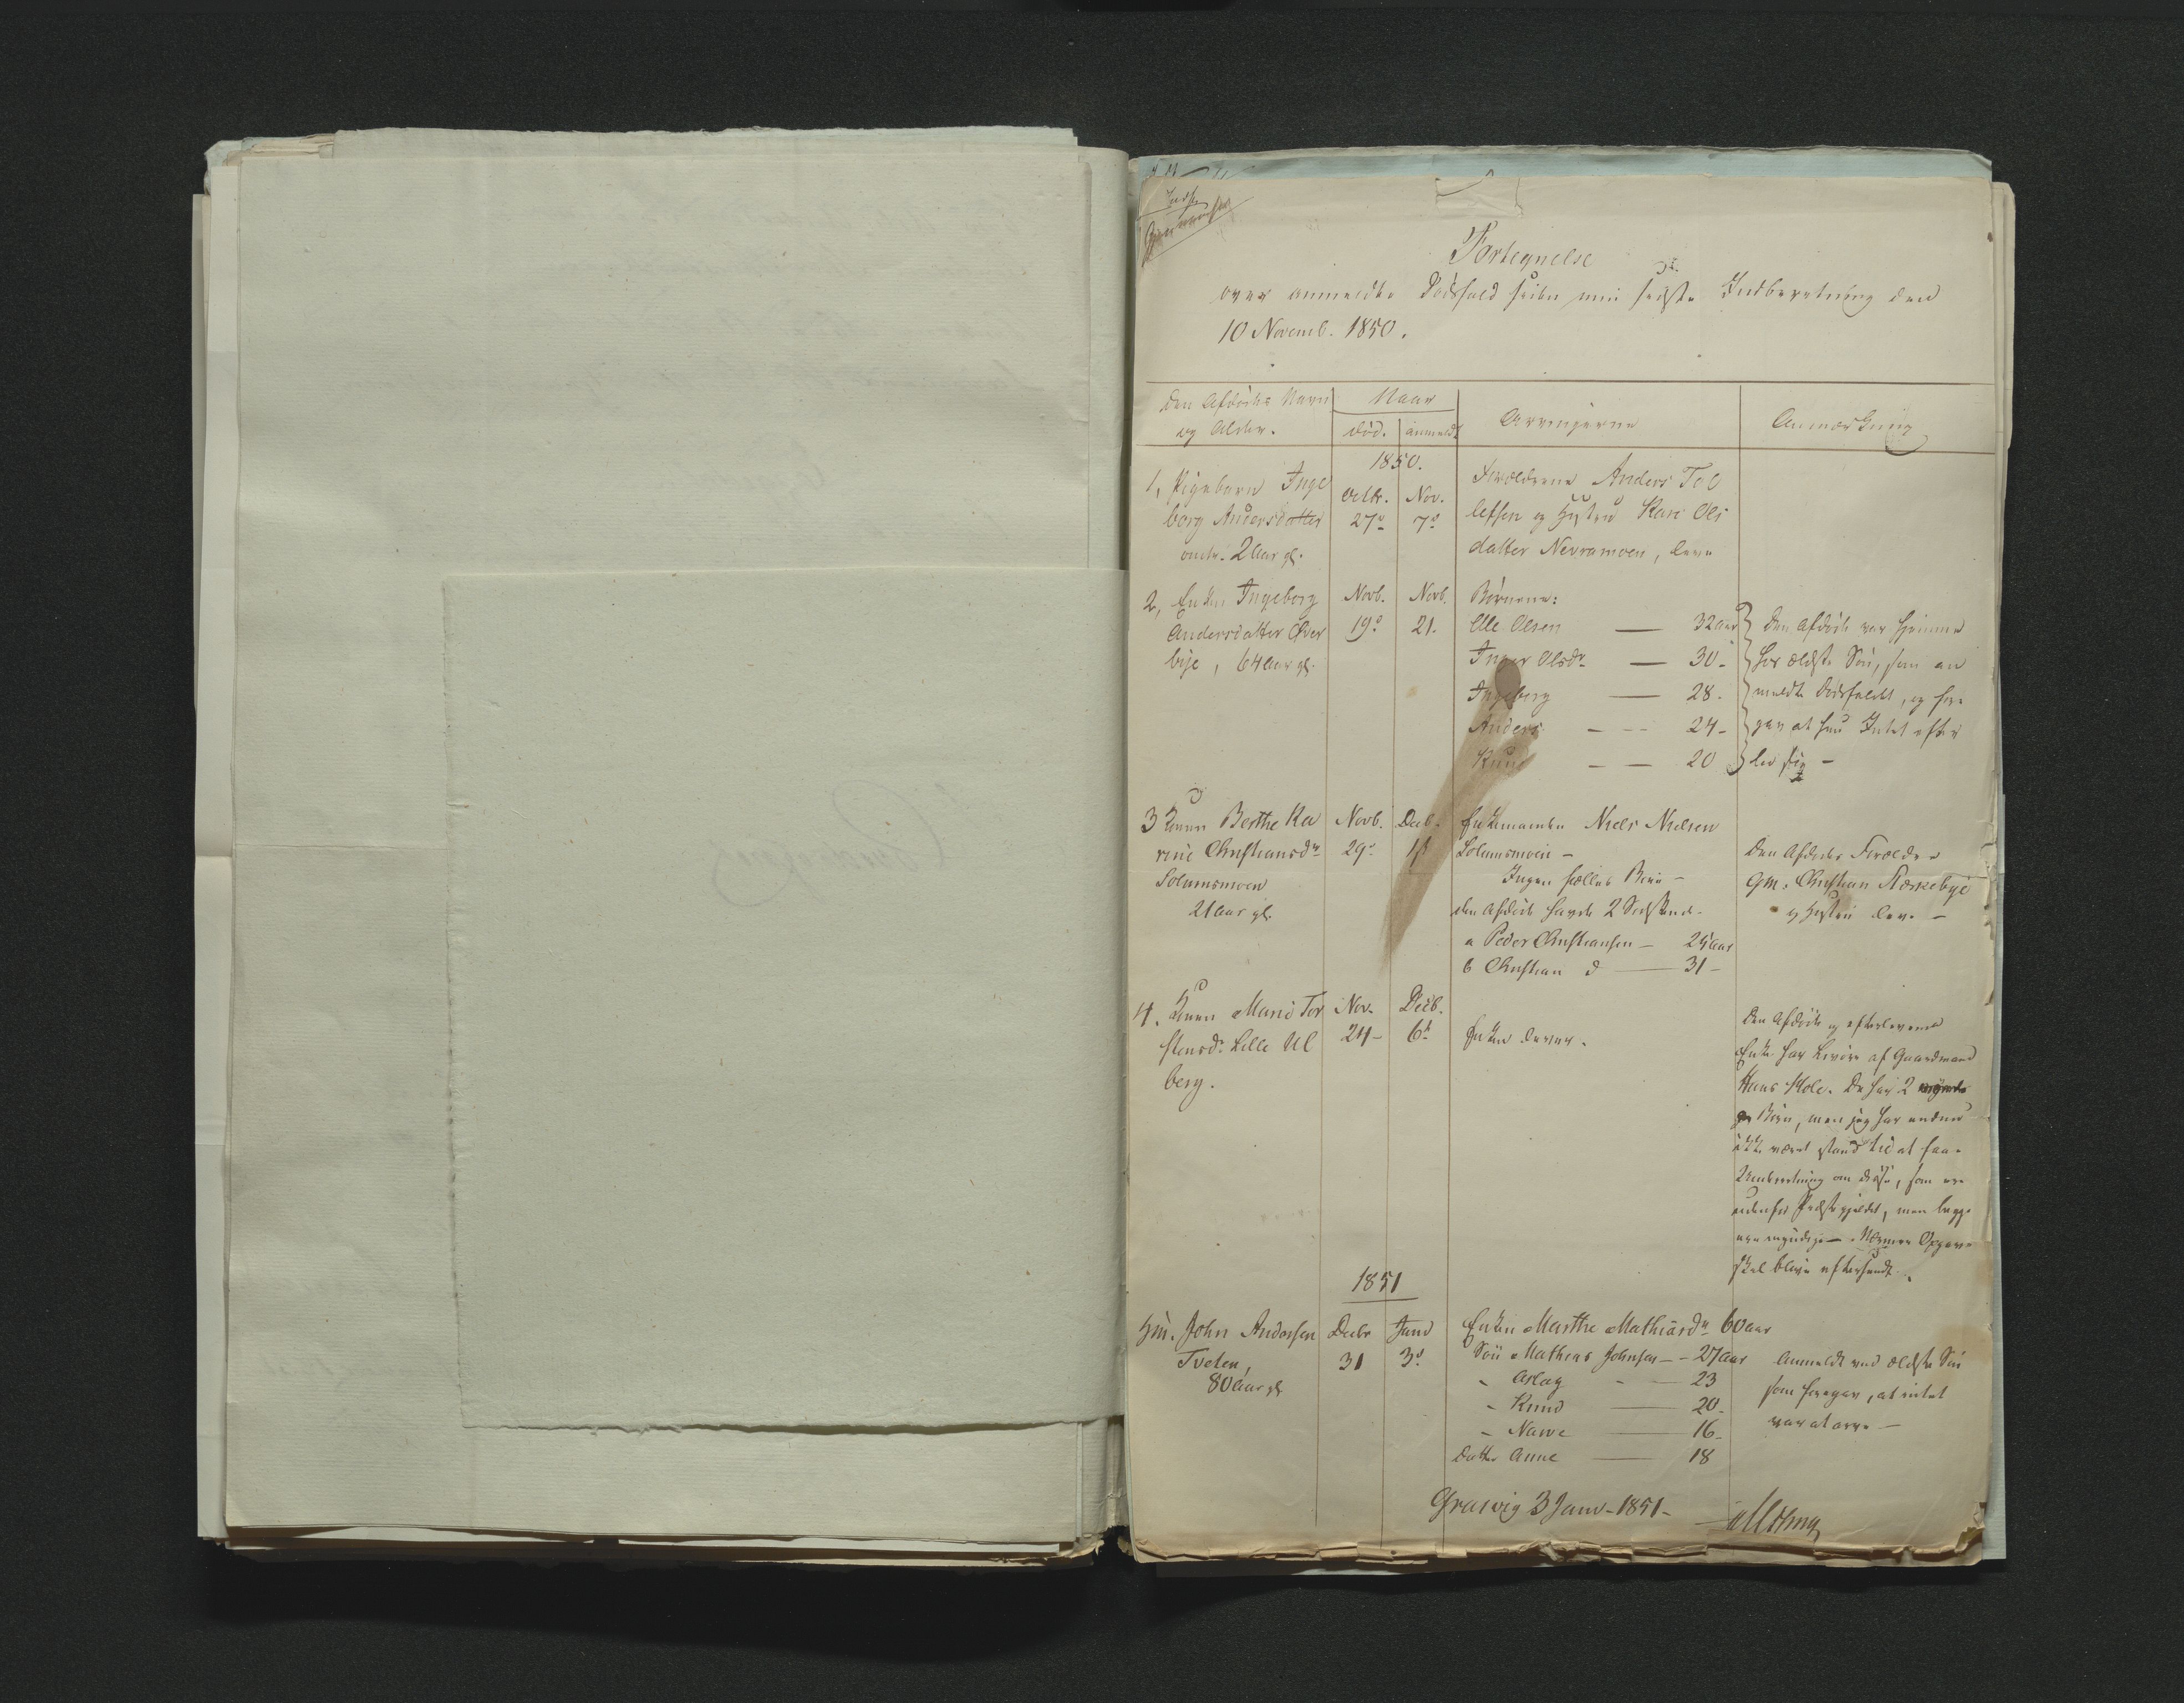 Fortegnelse
over anmeldte Dødsfald siden min sidste Indberetning den
10 Novemb. 1850.
Den Afdødes Navn
og Alder.
Naar
død.
anmeldt
Arvingerne
Anmærkning
1850.
1, Pigebarn Inge
borg Andersdatter
omtr. 2 Aar gl.
Octbr.
27de
Nov.
7de
Forældrene Anders Tol
lefsen og Hustru Kari Ols
datter Nevramoen, leve
2, Enken Ingeborg
Andersdatter Øver
bye, 64 Aar gl.
Novb.
19de
Novb.
21.
Børnene:
Ole Olsen — 32 aar
Inger Olsdr — 30 -
Ingeborg — 28 -
Anders - — 24 -
Knud - — 20
Den Afdøde var hjemme
hos ældste Søn, som an
meldte Dødsfaldet, og fore
gav at hun Intet efter
lod sig -
3 Konen Berthe Ka
rine Christiansdr
Solumsmoen
21 Aar gl.
Novb.
29.
Decb.
1st
Enkemanden Niels Nielsen
Solumsmoen -
Ingen fælles Børn -
den Afdøde havde 2 Sødskende.
a Peder Christiansen — 25 aar
b Christian d — 31 -
Den Afdødes Forældre
Gm. Christian Stærkebye
og Hustru leve. -
4. Konen Marie Tor
stensdr. Lille Ul
berg.
Nov.
24 -
Decb.
6te
Enken lever.
Den Afdøde og efterlevende
Enke har Livøre af Gaardmand
Hans Hole. De har 2
Børn, men jeg har endnu
ikke været istand til at faa
Underretning om disse, som ere
udenfor Præstegjeldet, men begge
ere myndige — Nærmere Opgave
skal blive eftersendt.
1851
Hm. John Andersen
Tveten,
80 Aar gl
Decbr
31
Janu
3de
Enken Marthe Mathiasdr 60 aar
Søn Mathias Johnsen — 27 aar
" Aslag - — 23
" Knud — 20 -
" Narve — 16 -
Datter Anne — 18
Anmeldt ved ældste Søn
som foregav, at intet
var at arve —
3 Janu - 1851 -